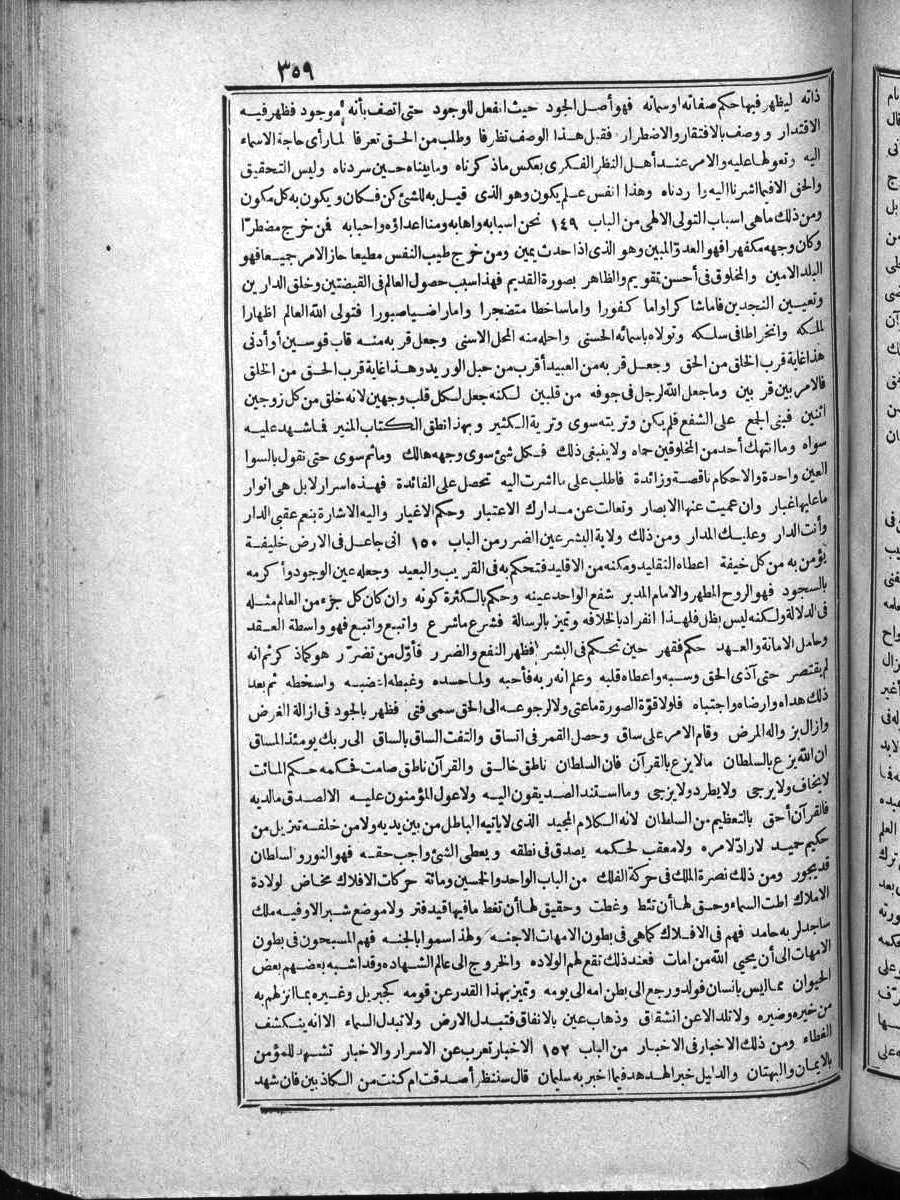 ٣٥٩
ذاته ليظهر فيها حكم صفاته اوسمائه فهو أصل الجود حيث انفعل للوجود حتى اتصف بأنه موجود فظهر فيه
الاقتدار ووصف بالافتقار والاضطرار فقبل هذا الوصف تظرفا وطلب من الحق تعرفا لما رأى حاجة الاسماء
اليه وتعولها عليه والامر عند أهل النظر الفكرى بعكس ماذكرناه ومابيناه حين سردناه وليس التحقيق
والحق الافيما اشرنا اليه وا ردناه وهذا انفس علم يكون وهو الذى قيل به للشئ كن فكان ويكون به كل مكون
ومن ذلك ماهى اسباب التولى الالهى من الباب ١٤٩ نحن اسبابه واهابه ومنا اعداؤه واحبابه فمن خرج مضطرّا
وكان وجهه مكفهرا فهو العدو المبين وهو الذى اذا حدث يمين ومن خرج طيب النفس مطيعا حاز الامر جميعا فهو
البلد الامين والمخلوق فى أحسن تقويم والظاهر بصورة القديم فهذا سبب حصول العالم فى القبضتين وخلق الدارين
وتعيين النجدين فاما شاكرا واما كفورا واما ساخطا متضجرا واما راضيا صبورا فتولى الله العالم اظهارا
لملكه وانخراطا فى سلكه وتولاه باسمائه الحسنى واحله منه المحل الاسنى وجعل قربه منه قاب قوسين أوأدنى
هذا غاية قرب الخلق من الحق وجعل قربه من العبيد أقرب من حبل الوريد وهذا غاية قرب الحق من الخلق
فالامر بين قربين وماجعل الله لرجل فى جوفه من قلبين لكنه جعل لكل قلب وجهين لانه خلق من كل زوجين
اثنين فبنى الجمع على الشفع فلم يكن وتريته سوى وترية الكثير وبهذا نطق الكتاب المنير فما شهد عليه
سواه وما انتهك أحد من المخلوقين حماه ولا ينبغى ذلك فكل شئ سوى وجهه هالك وماثم سوى حتى نقول بالسوا
العين واحدة والاحكام ناقصة وزائدة فاطلب على ما اشرت اليه تحصل على الفائدة فهذه اسرار لا بل هى انوار
ما عليها اغيار وان عميت عنها الابصار وتعالت عن مدارك الاعتبار وحكم الاغيار واليه الاشارة بنعم عقبى الدار
وأنت الدار وعليك المدار ومن ذلك ولاية البشر عين الضرر من الباب ١٥٠ انى جاعل فى الارض خليفة
يؤمن به من كل خيفة اعطاه التقليد ومكنه من الاقليد فتحكم به فى القريب والبعيد وجعله عين الوجود وأكرمه
بالسجود فهو الروح المطهر والامام المدبر شفع الواحد عينه وحكم بالكثرة كونه وان كان كل جزء من العالم مثله
فى الدلالة ولكنه ليس بظل فلهذا انفرد بالخلافه وتميز بالرسالة فشرع ماشرع واتبع واتبع فهو واسطة العقد
وحامل الامانة والعهد حكم فقهر حين تحكم فى البشر فظهر النفع والضرر فأول من تضرّر هو كماذكر ثم انه
لم يقتصر حتى آذى الحق وسبه واعطاه قلبه وعلم انه ربه فأحبه ولما حسده وغبطه اغضبه واسخطه ثم بعد
ذلك هداه وارضاه واجتباه فلولا قوّة الصورة ماعتى ولا لرجوعه الى الحق سمى فتى فظهر بالجود فى ازالة الغرض
وازال بزواله المرض وقام الامر على ساق وحصل القمر فى اتساق والتفت الساق بالساق الى ربك يومئذ المساق
ان الله يزع بالسلطان مالا يزع بالقرآن فان السلطان ناطق خالق والقرآن ناطق صامت فحكمه حكم المائت
لا يخاف ولا يرجى ولا يطرد ولا يزجى وما استند الصديقون اليه ولا عول المؤمنون عليه الا لصدق مالديه
فالقرآن أحق بالتعظيم من السلطان لانه الكلام المجيد الذى لا ياتيه الباطل من بين يديه ولا من خلفه تنزيل من
حكيم حميد لا رادّ لامره ولا معقب لحكمه يصدق فى نطقه ويعطى الشئ واجب حقه فهو النور والسلطان
قد يجور ومن ذلك نصرة الملك فى حركة الفلك من الباب الواحد والخمسين ومائة حركات الافلاك مخاض لولادة
الاملاك اطت السماء وحق لها أن تئط وغطت وحقيق لها أن تغط مافيها قيد فتر ولا موضع شبر الا وفيه ملك
ساجد لربه حامد فهم فى الافلاك كما هى فى بطون الامهات الاجنه ولهذا سموا بالجنه فهم المسبحون فى بطون
الامهات الى أن يحيى الله من امات فعند ذلك تقع لهم الولاده والخروج الى عالم الشهاده وقد اشبه بعضهم بعض
الحيوان مما ليس بانسان فولد ورجع الى بطن امه الى يومه وتميز بهذا القدر عن قومه كجبريل وغيره بما انزلهم به
من خيره وضيره ولا تلد الا عن انشقاق وذهاب عين بالانفاق فتبدل الارض ولا تبدل السماء الا انه ينكشف
الغطاء ومن ذلك الاخبار فى الاخبار من الباب ١٥٢ الاخبار تعرب عن الاسرار والاخبار تشهد للمؤمن
بالايمان والبهتان والدليل خبر الهدهد فيما اخبر به سليمان قال سننظر أصدقت ام كنت من الكاذبين فان شهد